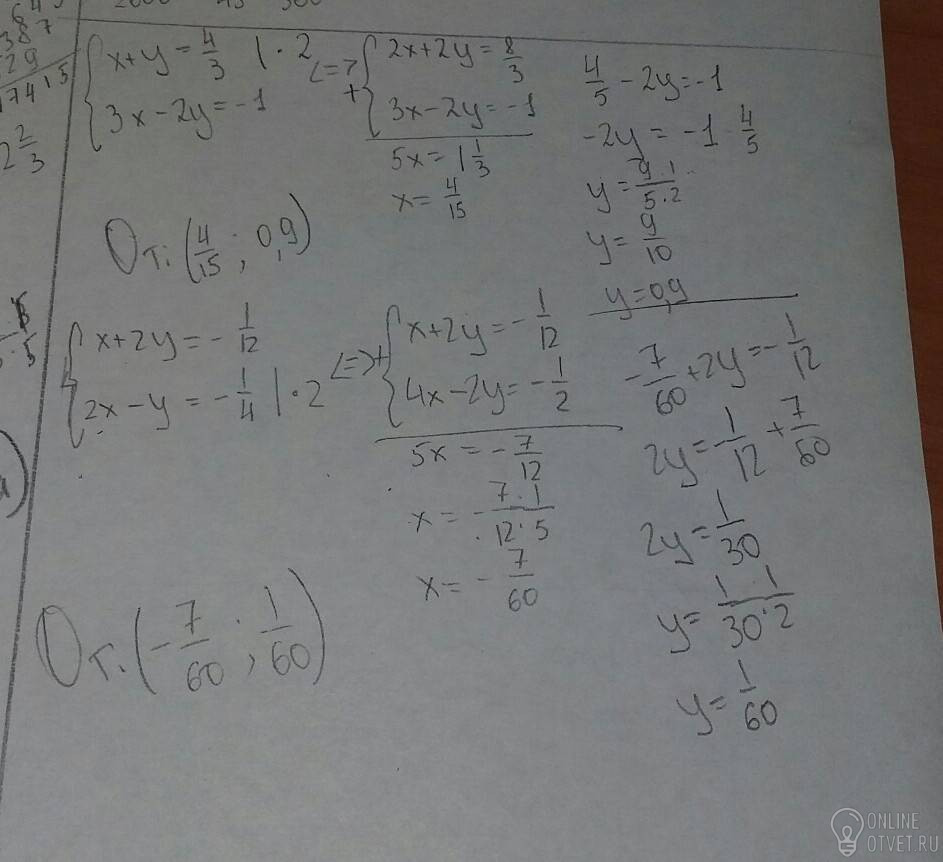 387
29
17415
2 2/3
{ x+y = 4/3 | · 2
3x-2y = -1
<=> + { 2x+2y = 8/3
3x-2y = -1
5x = 1 1/3
x = 4/15
4/5 - 2y = -1
-2y = -1 4/5
y = 9·1/5·2
y = 9/10
y = 0,9
От: (4/15 ; 0,9)
{ x+2y = - 1/12
2x-y = - 1/4 | · 2
<=> + { x+2y = - 1/12
4x-2y = - 1/2
5x = - 7/12
x = - 7·1/12·5
x = - 7/60
- 7/60 + 2y = - 1/12
2y = - 1/12 + 7/60
2y = 1/30
y = 1·1/30·2
y = 1/60
От. (- 7/60 ; 1/60)
ONLINE
OTVET.RU